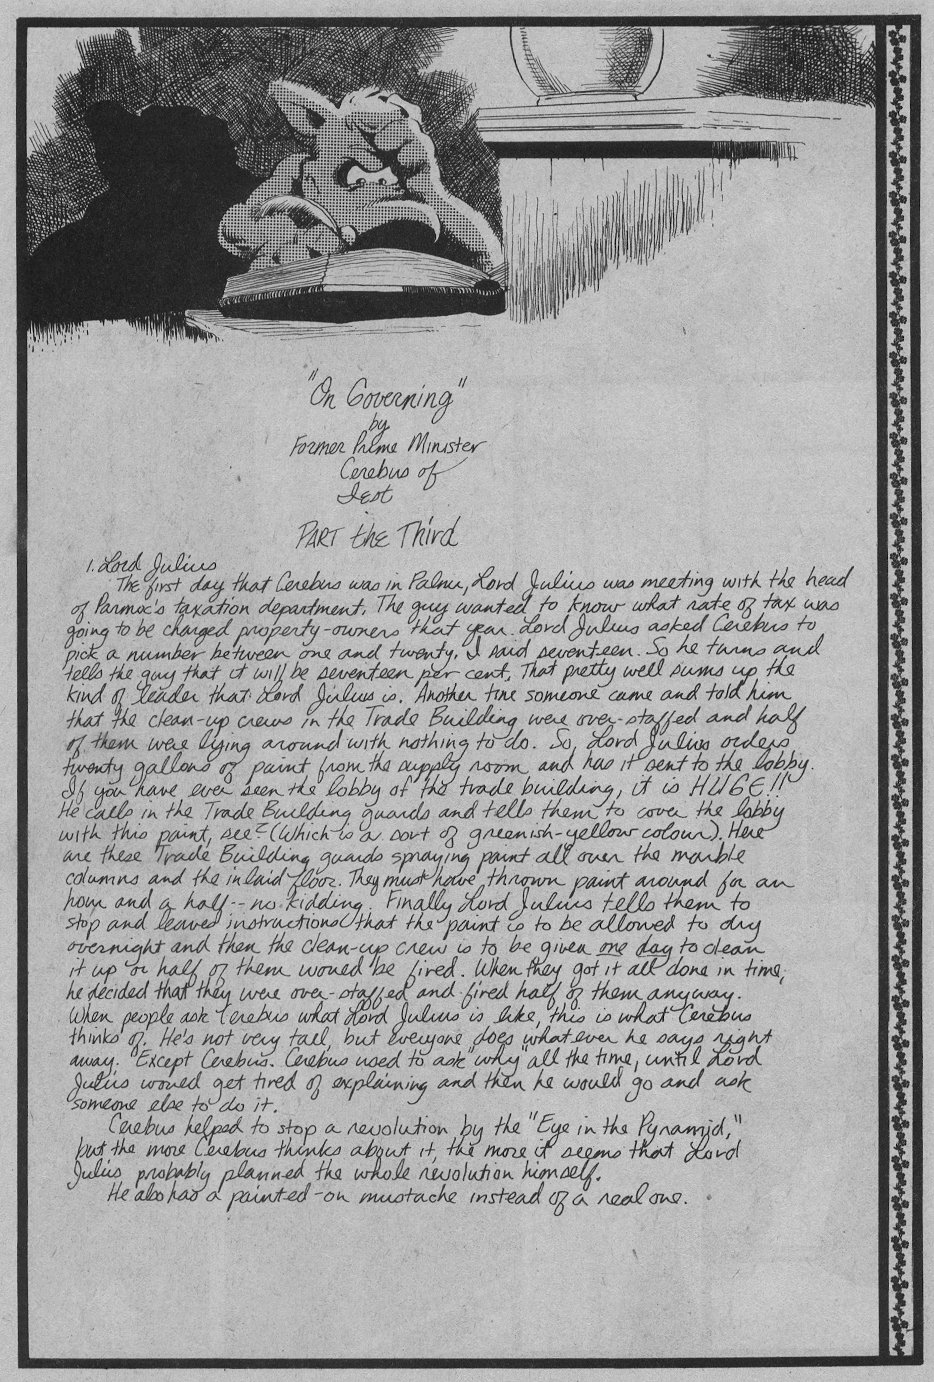 "On Governing"
by
Former Prime Minister
Cerebus of
Iest
PART the Third
1. Lord Julius
The first day that Cerebus was in Palnu, Lord Julius was meeting with the head
of Parmoc's taxation department. The guy wanted to know what rate of tax was
going to be charged property-owners that year. Lord Julius asked Cerebus to
pick a number between one and twenty. I said seventeen. So he turns and
tells the guy that it will be seventeen per cent. That pretty well sums up the
kind of leader that Lord Julius is. Another time someone came and told him
that the clean-up crews in the Trade Building were over-staffed and half
of them were lying around with nothing to do. So, Lord Julius orders
twenty gallons of paint from the supply room and has it sent to the lobby.
If you have ever seen the lobby of the trade building, it is HUGE!!
He calls in the Trade Building guards and tells them to cover the lobby
with this paint, see? (Which is a sort of greenish-yellow colour). Here
are these Trade Building guards spraying paint all over the marble
columns and the inlaid floor. They must have thrown paint around for an
hour and a half -- no kidding. Finally Lord Julius tells them to
stop and leaves instructions that the paint is to be allowed to dry
overnight and then the clean-up crew is to be given one day to clean
it up or half of them would be fired. When they got it all done in time,
he decided that they were over-staffed and fired half of them anyway.
When people ask Cerebus what Lord Julius is like, this is what Cerebus
thinks of. He's not very tall, but everyone does whatever he says right
away. Except Cerebus. Cerebus used to ask "why" all the time, until Lord
Julius would get tired of explaining and then he would go and ask
someone else to do it.
Cerebus helped to stop a revolution by the "Eye in the Pyramid,"
but the more Cerebus thinks about it, the more it seems that Lord
Julius probably planned the whole revolution himself.
He also has a painted-on mustache instead of a real one.